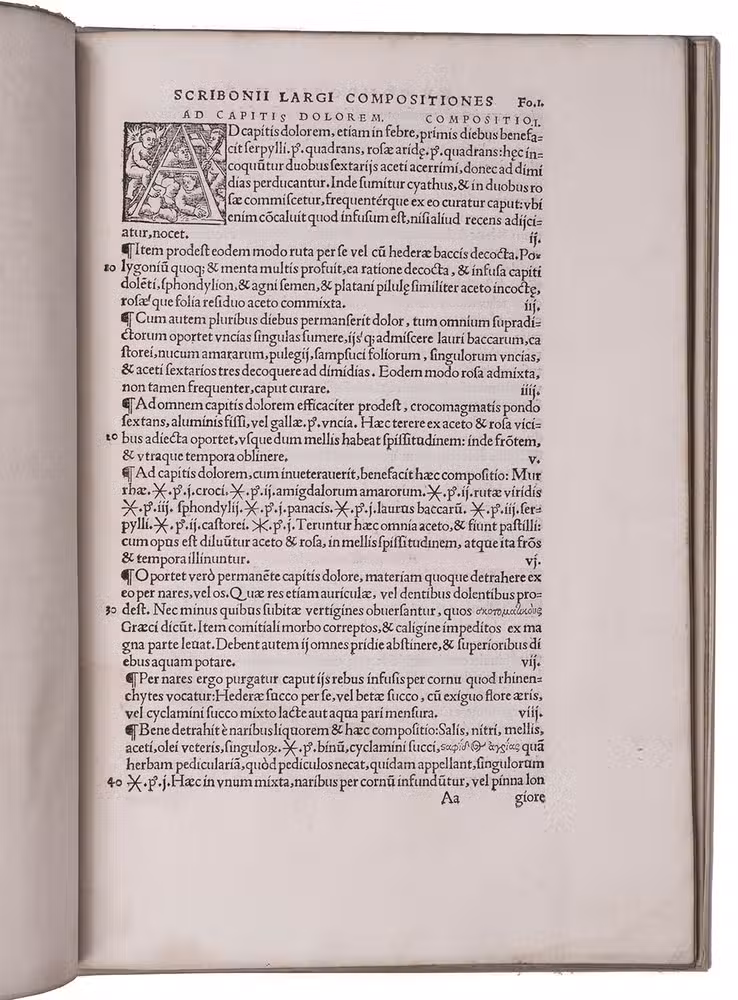 SCRIBONII LARGI COMPOSITIONES Fo.1.
AD CAPITIS DOLOREM. COMPOSITIO.1.
AD capitis dolorem, etiam in febre, primis diebus benefa-
cit ſerpylli.p̊. quadrans, roſæ aridę.p̊. quadrans: hęc in=
coquūtur duobus ſextarijs aceti acerrimi, donec ad dimi
dias perducantur. Inde ſumitur cyathus, & in duobus ro
ſæ commiſcetur, frequentérque ex eo curatur caput: vbi
enim cōcaluit quod infuſum eſt, niſi aliud recens adijci=
atur, nocet. ij.
¶Item prodeſt eodem modo ruta per ſe vel cū hederæ baccis decocta. Po=
10 lygoniū quoq; & menta multis profuit, ea ratione decocta, & infuſa capiti
dolēti, ſphondylion, & agni ſemen, & platani pilulę ſimiliter aceto incoctę,
roſæ'que folia reſiduo aceto commixta. iij.
¶Cum autem pluribus diebus permanſerit dolor, tum omnium ſupradi=
ctorum oportet vncias ſingulas ſumere, ijs'q; admiſcere lauri baccarum, ca
ſtorei, nucum amararum, pulegij, ſampſuci foliorum, ſingulorum vncias,
& aceti ſextarios tres decoquere ad dimidias. Eodem modo roſa admixta,
non tamen frequenter, caput curare. iiij.
¶Ad omnem capitis dolorem efficaciter prodeſt, crocomagmatis pondo
ſextans, aluminis fiſſi, vel gallæ.p̊.vncia. Hæc terere ex aceto & roſa vici=
20 bus adiecta oportet, vſque dum mellis habeat ſpiſſitudinem: inde frōtem,
& vtraque tempora oblinere. v.
¶Ad capitis dolorem, cum inueterauerit, benefacit hæc compoſitio: Mur
rhæ.⚹.p̊.j. croci.⚹.p̊.ij. amigdalorum amarorum.⚹.p̊.ij. rutæ viridis
⚹.p̊.iij. ſphondylij.⚹.p̊.j. panacis.⚹.p̊.j. laurus baccarū.⚹.p̊.iij. ſer=
pylli.⚹.p̊.ij. caſtorei.⚹.p̊.j. Teruntur hæc omnia aceto, & fiunt paſtilli:
cum opus eſt diluūtur aceto & roſa, in mellis ſpiſſitudinem, atque ita frōs
& tempora illinuntur. vj.
¶Oportet verò permanēte capitis dolore, materiam quoque detrahere ex
eo per nares, vel os. Quæ res etiam auriculæ, vel dentibus dolentibus pro=
30 deſt. Nec minus quibus ſubitæ vertigines obuerſantur, quos σκοτωματικοὺς
Græci dicūt. Item comitiali morbo correptos, & caligine impeditos ex ma
gna parte leuat. Debent autem ij omnes pridie abſtinere, & ſuperioribus di
ebus aquam potare. vij.
¶Per nares ergo purgatur caput ijs rebus infuſis per cornu quod rhinen=
chytes vocatur: Hederæ ſucco per ſe, vel betæ ſucco, cū exiguo flore æris,
vel cyclamini ſucco mixto lacte aut aqua pari menſura. viij.
¶Bene detrahit è naribus liquorem & hæc compoſitio: Salis, nitri, mellis,
aceti, olei veteris, ſinguloꝝ.⚹.p̊. binū, cyclamini ſucci, ἀγρίας quā
herbam pediculariā, quòd pediculos necat, quidam appellant, ſingulorum
40 ⚹.p̊.j. Hæc in vnum mixta, naribus per cornū infundūtur, vel pinna lon
Aa giore